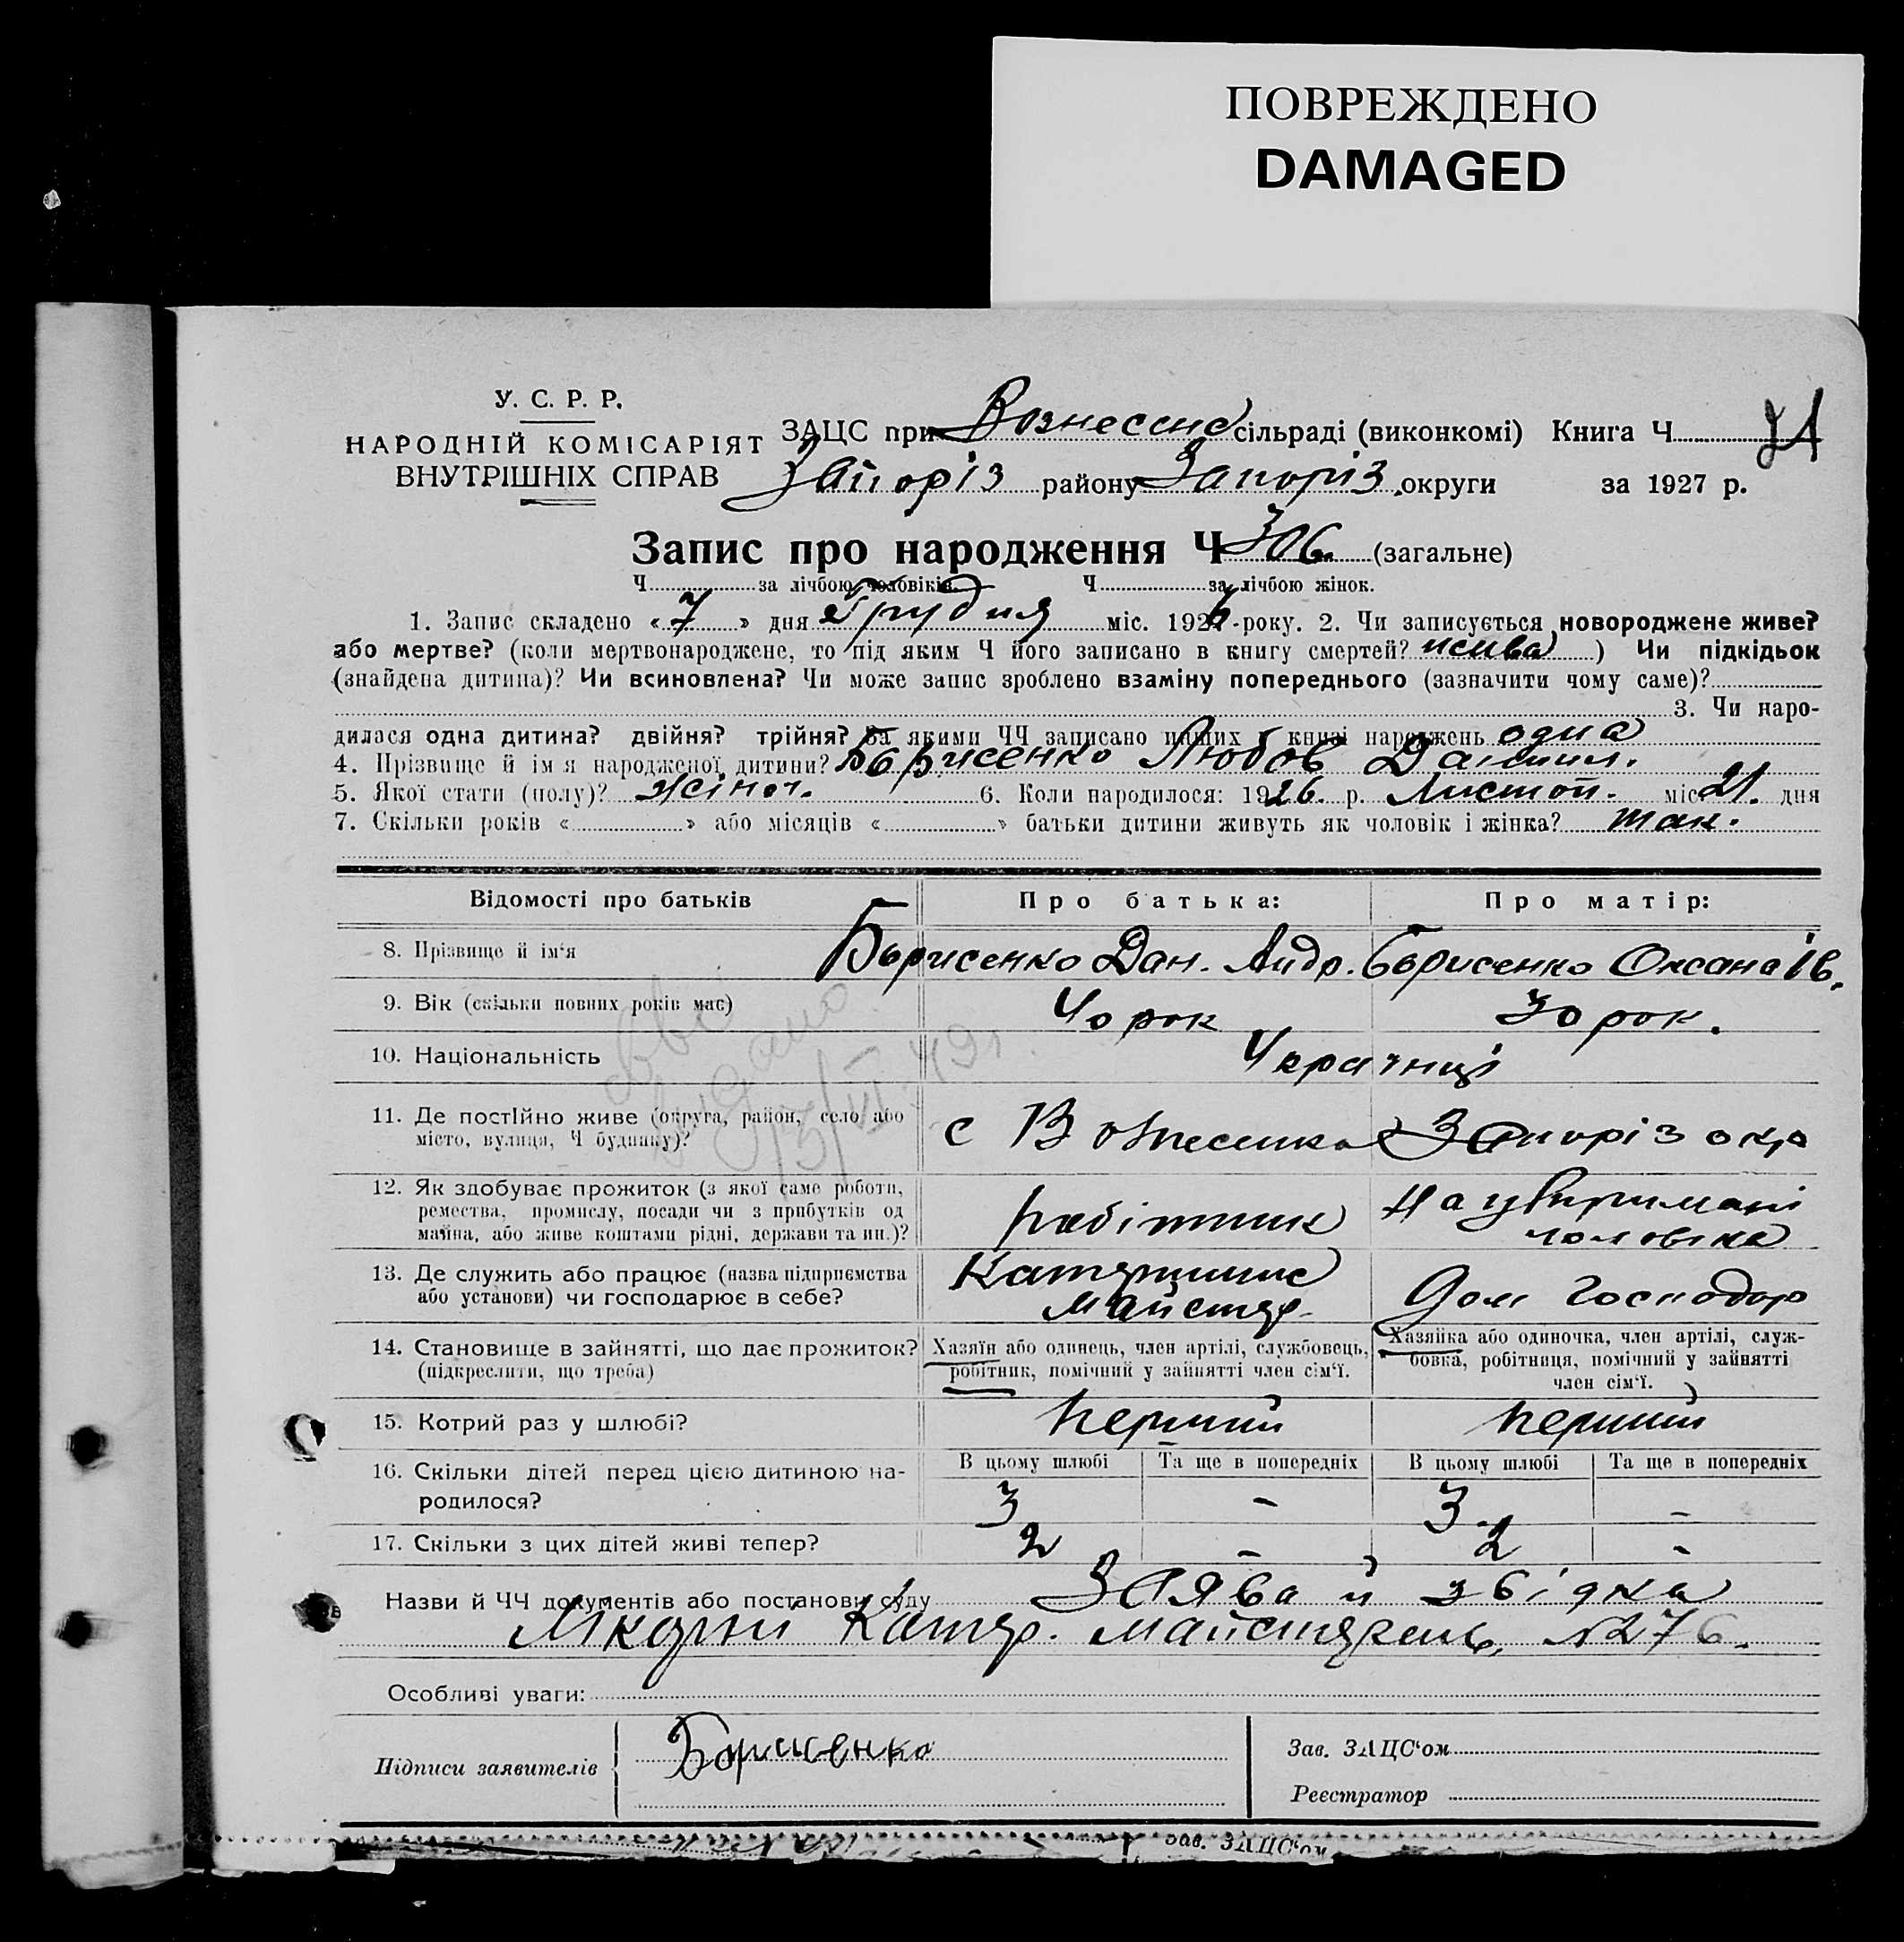 ПОВРЕЖДЕНО
DAMAGED
У. С. Р. Р.
НАРОДНІЙ КОМІСАРІЯТ
ВНУТРІШНІХ СПРАВ
ЗАЦС при Вознесенс сільраді (виконкомі) Книга Ч
Запоріз району Запоріз. округи за 1927 р.
Запис про народження Ч 306. (загальне)
Ч за лічбою чоловіків Ч за лічбою жінок.
1. Запис складено « 7 » дня Грудня міс. 1926-року. 2. Чи записується новороджене живе?
або мертве? (коли мертвонароджене, то під яким Ч його записано в книгу смертей? жива ) Чи підкідьок
(знайдена дитина)? Чи всиновлена? Чи може запис зроблено взаміну попереднього (зазначити чому саме)?
3. Чи наро-
дилася одна дитина? двійня? трійня? За якими ЧЧ записано инших в книзі народжень одна
4. Прізвище й ім я народженої дитини? Борисенко Любов Данил.
5. Якої стати (полу)? жіноч. 6. Коли народилося: 1926. р. Листоп. міс. 21. дня
7. Скільки років « » або місяців « » батьки дитини живуть як чоловік і жінка? так.
Відомості про батьків Про батька: Про матір:
8. Прізвище й ім'я Борисенко Дан. Андр. Борисенко Оксана Ів.
9. Вік (скільки повних років має) 40 рок 30 рок.
10. Національність Українці
11. Де постІйно живе (округа, район, село або с Вознесенка Запоріз окр
місто, вулиця, Ч будинку)?
12. Як здобуває прожиток (з якої саме роботи,
ремества, промислу, посади чи з прибутків од
майна, або живе коштами рідні, держави та ин.)? робітник На увтримані чоловіка
13. Де служить або працює (назва підприємства
або установи) чи господарює в себе? майстер. Дом господар
14. Становище в зайнятті, що дає прожиток? Хазяїн або одинець, член артілі, службовець, Хазяйка або одиночка, член артілі, служ-
(підкреслити, що треба) робітник, помічний у зайнятті член сім'ї. бовка, робітниця, помічний у зайнятті
член сім'ї.
15. Котрий раз у шлюбі? перший перший
16. Скільки дітей перед цією дитиною на- В цьому шлюбі Та ще в попередніх В цьому шлюбі Та ще в попередніх
родилося? 3 - 3 -
17. Скільки з цих дітей живі тепер? 2 - 2 -
Назви й ЧЧ документів або постанови суду Заява й звідка
Катер. майстерень, №276.
Особливі уваги:
Підписи заявителів Борисенко Зав. ЗАЦС'ом
Реєстратор
Зав. ЗАЦС'ом